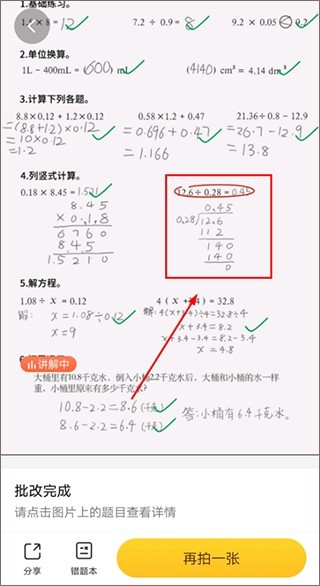 1.基础练习。
1.5×8=12 7.2÷0.9=8 9.2×0.05 0.2
2.单位换算。
1L-400mL=(600)mL (4140)cm³=4.14dm³
3.计算下列各题。
8.8×0.12+1.2×0.12 0.58×1.2+0.47 21.36÷0.8-12.9
=(8.8+1.2)×0.12 =0.696+0.47 =26.7-12.9
=10×0.12 =1.166 =13.8
=1.2
4.列竖式计算。
0.18×8.45=1.521 12.6÷0.28=0.45
8.45 0.45
×0.18 0.28/12.6
6760 112
845 140
1.5210 140
0
5.解方程。
1.08÷x=0.12 4(x+3.4)=32.8
解: x=1.08÷0.12 解:4(x+3.4)÷4=32.8÷4
x=9 x+3.4=8.2
x+3.4-3.4=8.2-3.4
x=4.8
讲解中
大桶里有10.8千克水,倒入小桶2.2千克水后,大桶和小桶的水一样
重,小桶里原来有多少千克水?
10.8-2.2=8.6(千克)
8.6-2.2=6.4(千克) 答:小桶有6.4千克水。
批改完成
请点击图片上的题目查看详情
分享 错题本 再拍一张